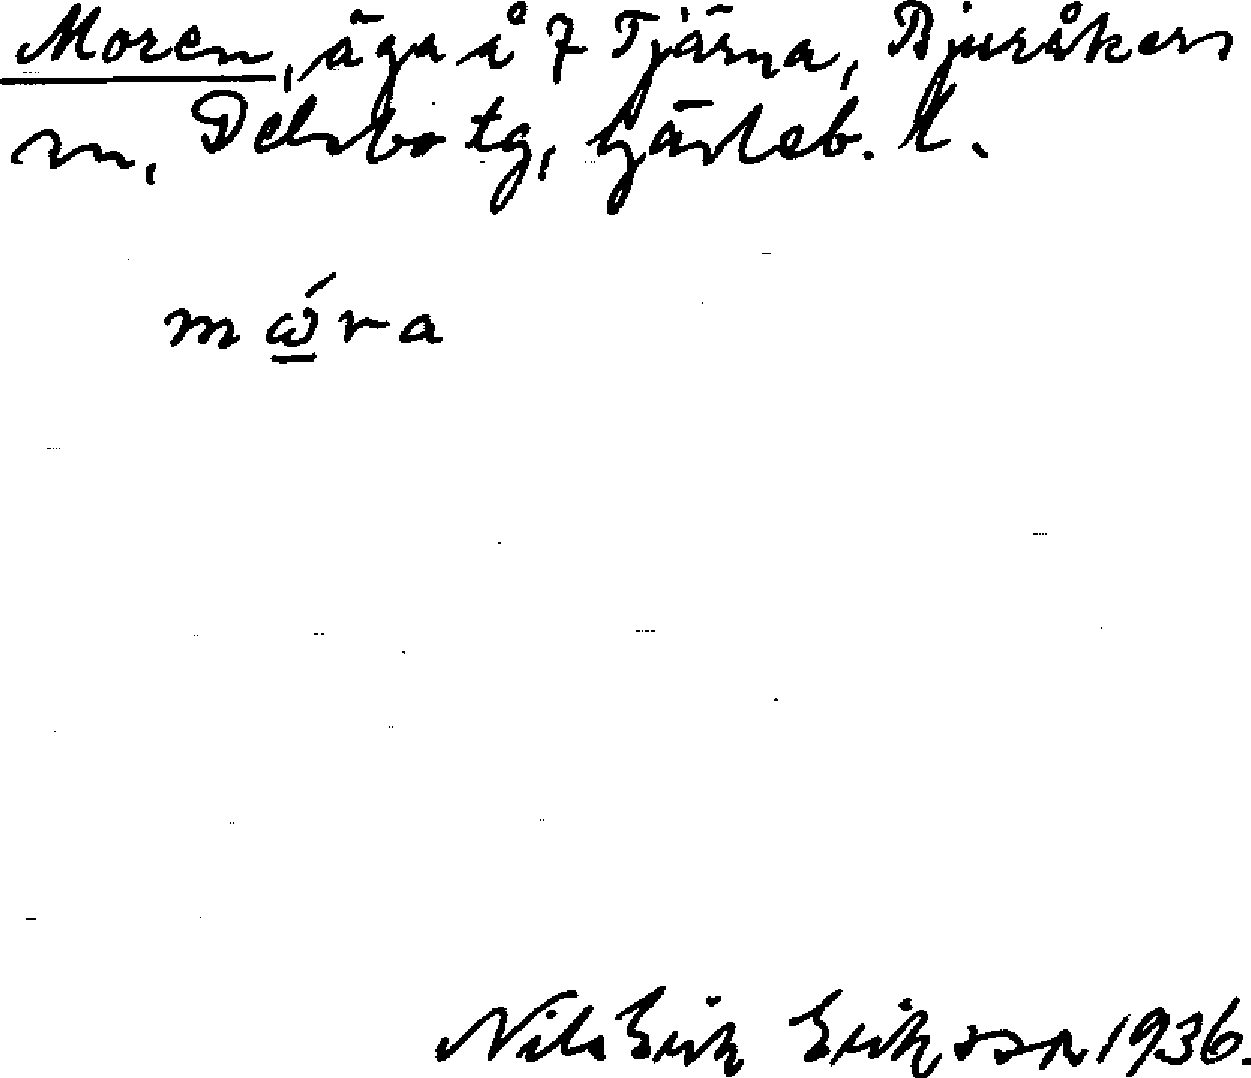 Moren, äga å 7 Tjärna, Bjuråkers
sn, Delsbo tg, Gävleb. l.
mώ̲ra
Nils Erik Eriksson 1936.